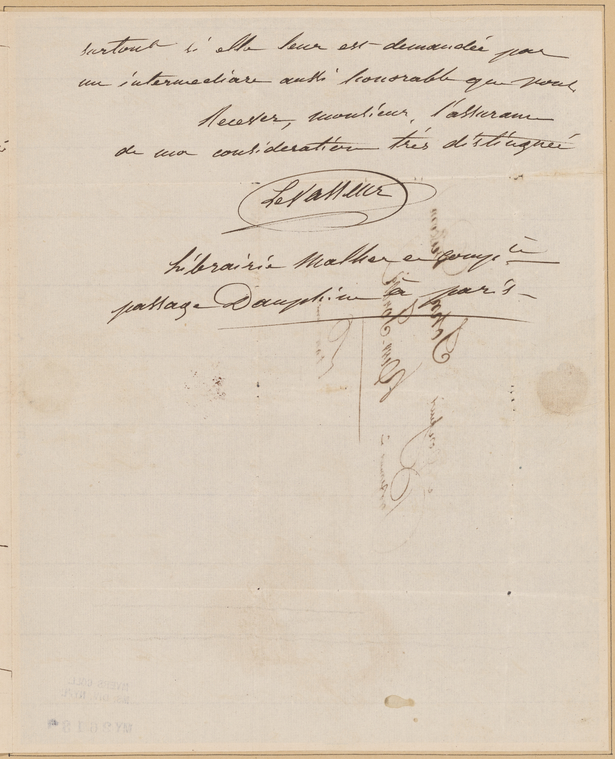 surtout si elle leur est demandée par
un intermediare aussi honorable que vous.
Recevez, monsieur, l'assurance
de ma considération très distinguée
LeVasseur
Librairie Malher en Comp.ie
passage Dauphine à paris